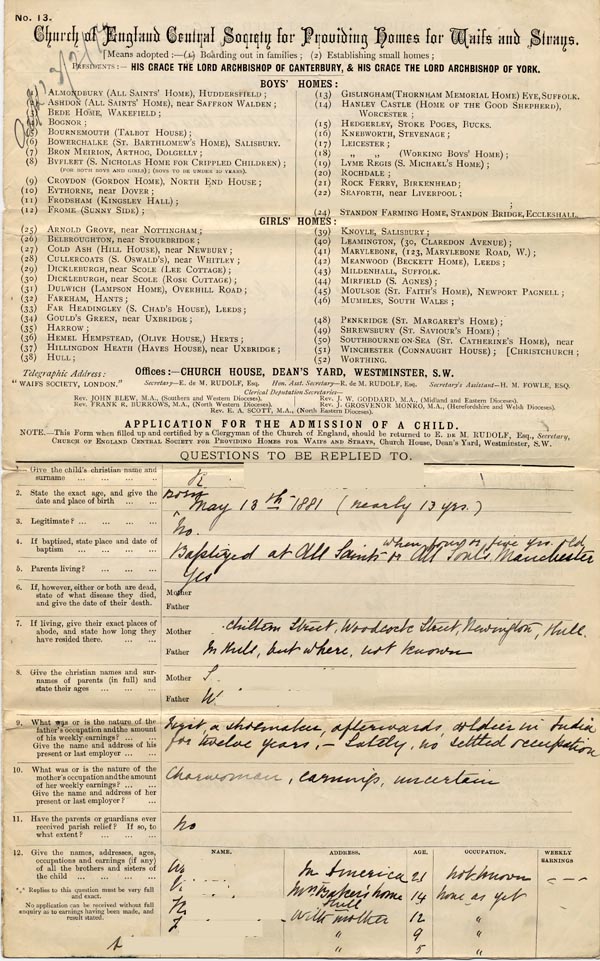 No. 13.
Church of England Central Society for Providing Homes for Waifs and Strays.
[Means adopted:—(1) Boarding out in families; (2) Establishing small homes;
PRESIDENTS:— HIS GRACE THE LORD ARCHBISHOP OF CANTERBURY, & HIS GRACE THE LORD ARCHBISHOP OF YORK.
BOYS' HOMES:
(1) ALMONDBURY (ALL SAINTS' HOME), HUDDERSFIELD;
(2) ASHDON (ALL SAINTS' HOME), near SAFFRON WALDEN;
(3) BEDE HOME, WAKEFIELD;
(4) BOGNOR;
(5) BOURNEMOUTH (TALBOT HOUSE);
(6) BOWERCHALKE (ST. BARTHLOMEW'S HOME), SALISBURY.
(7) BRON MEIRION, ARTHOG, DOLGELLY;
(8) BYFLEET (S. NICHOLAS HOME FOR CRIPPLED CHILDREN);
(FOR BOTH BOYS AND GIRLS); (BOYS TO BE UNDER 10 YEARS).
(9) CROYDON (GORDON HOME), NORTH END HOUSE;
(10) EYTHORNE, near DOVER;
(11) FRODSHAM (KINGSLEY HALL);
(12) FROME (SUNNY SIDE);
(13) GISLINGHAM (THORNHAM MEMORIAL HOME) EYE, SUFFOLK.
(14) HANLEY CASTLE (HOME OF THE GOOD SHEPHERD),
WORCESTER;
(15) HEDGERLEY, STOKE POGES, BUCKS.
(16) KNEBWORTH, STEVENAGE;
(17) LEICESTER;
(18) " " (WORKING BOYS' HOME);
(19) LYME REGIS (S. MICHAEL'S HOME);
(20) ROCHDALE;
(21) ROCK FERRY, BIRKENHEAD;
(22) SEAFORTH, near LIVERPOOL;
;
(24) STANDON FARMING HOME, STANDON BRIDGE, ECCLESHALL.
GIRLS' HOMES:
(25) ARNOLD GROVE, near NOTTINGHAM;
(26) BELBROUGHTON, near STOURBRIDGE;
(27) COLD ASH (HILL HOUSE), near NEWBURY;
(28) CULLERCOATS (S. OSWALD'S), near WHITLEY;
(29) DICKLEBURGH, near SCOLE (LEE COTTAGE);
(30) DICKLEBURGH, near SCOLE (ROSE COTTAGE);
(31) DULWICH (LAMPSON HOME), OVERHILL ROAD;
(32) FAREHAM, HANTS;
(33) FAR HEADINGLEY (S. CHAD'S HOUSE), LEEDS;
(34) GOULD'S GREEN, near UXBRIDGE;
(35) HARROW;
(36) HEMEL HEMPSTEAD, (OLIVE HOUSE,) HERTS;
(37) HILLINGDON HEATH (HAYES HOME), near UXBRIDGE;
(38) HULL;
(39) KNOYLE, SALISBURY;
(40) LEAMINGTON, (30, CLAREDON AVENUE);
(41) MARYLEBONE, (123, MARYLEBONE ROAD, W.);
(42) MEANWOOD (BECKETT HOME), LEEDS;
(43) MILDENHALL, SUFFOLK.
(44) MIRFIELD (S. AGNES);
(45) MOULSOE (ST. FAITH'S HOME), NEWPORT PAGNELL;
(46) MUMBLES, SOUTH WALES;
(48) PENKRIDGE (ST. MARGARET'S HOME);
(49) SHREWSBURY (ST. SAVIOUR'S HOME);
(50) SOUTHBOURNE-ON-SEA (ST. CATHERINE'S HOME), near
(51) WINCHESTER (CONNAUGHT HOUSE); [CHRISTCHURCH;
(52) WORTHING.
Telegraphic Address:
"WAIFS SOCIETY, LONDON."
Offices:—CHURCH HOUSE, DEAN'S YARD, WESTMINSTER, S.W.
Secretary—E. DE M. RUDOLF, ESQ. Hon. Asst. Secretary—R. DE M. RUDOLF, ESQ. Secretary's Assistant—H. M. FOWLE, ESQ.
Clerical Deputation Secretaries—
REV. JOHN BLEW, M.A., (Southern and Western Dioceses). REV. J. W. GODDARD, M.A., (Midland and Eastern Dioceses).
REV. FRANK R. BURROWS, M.A., (North Western Dioceses). REV. J. GROSVENOR MUNRO, M.A., (Herefordshire and Welsh Dioceses).
REV. E. A. SCOTT, M.A., (North Eastern Dioceses).
APPLICATION FOR THE ADMISSION OF A CHILD.
NOTE.—This Form when filled up and certified by a Clergyman of the Church of England, should be returned to E. DE M. RUDOLF, ESQ., Secretary,
CHURCH OF ENGLAND CENTRAL SOCIETY FOR PROVIDING HOMES FOR WAIFS AND STRAYS, Church House, Dean's Yard, Westminster, S.W.
QUESTIONS TO BE REPLIED TO.
1. Give the child's christian name and
surname
2. State the exact age, and give the
date and place of birth
born
May 13th 1881 (nearly 13 yrs.)
3. Legitimate?
No.
4. If baptized, state place and date of
baptism
when four or five yrs. old
Baptized at All Saints or All Souls, Manchester
5. Parents living?
Yes
6. If, however, either or both are dead,
state of what disease they died,
and give the date of their death.
Mother
Father
7. If living, give their exact places of
abode, and state how long they
have resided there.
Mother Chiltern Street, Woodcock Street, Newington, Hull.
Father In Hull, but where, not known
8. Give the christian names and sur-
names of parents (in full) and
state their ages
Mother S.
Father W.
9. What was or is the nature of the
father's occupation and the amount
of his weekly earnings?
Give the name and address of his
present or last employer
First, a shoemaker, afterwards, soldier in India
for twelve years,— Lately, no settled occupation
10. What was or is the nature of the
mother's occupation and the amount
of her weekly earnings?
Give the name and address of her
present or last employer?
Charwoman, earnings, uncertain
11. Have the parents or guardians ever
received parish relief? If so, to
what extent?
No
12. Give the names, addresses, ages,
occupations and earnings (if any)
of all the brothers and sisters of
the child
*** Replies to this question must be very full
and exact.
No application can be received without full
enquiry as to earnings having been made, and
result stated.
NAME. ADDRESS. AGE. OCCUPATION. WEEKLY EARNINGS
In America 21 not known
Mrs Baker's home 14 none as yet
Hull
With mother 12 "
" 9 "
" 5 "